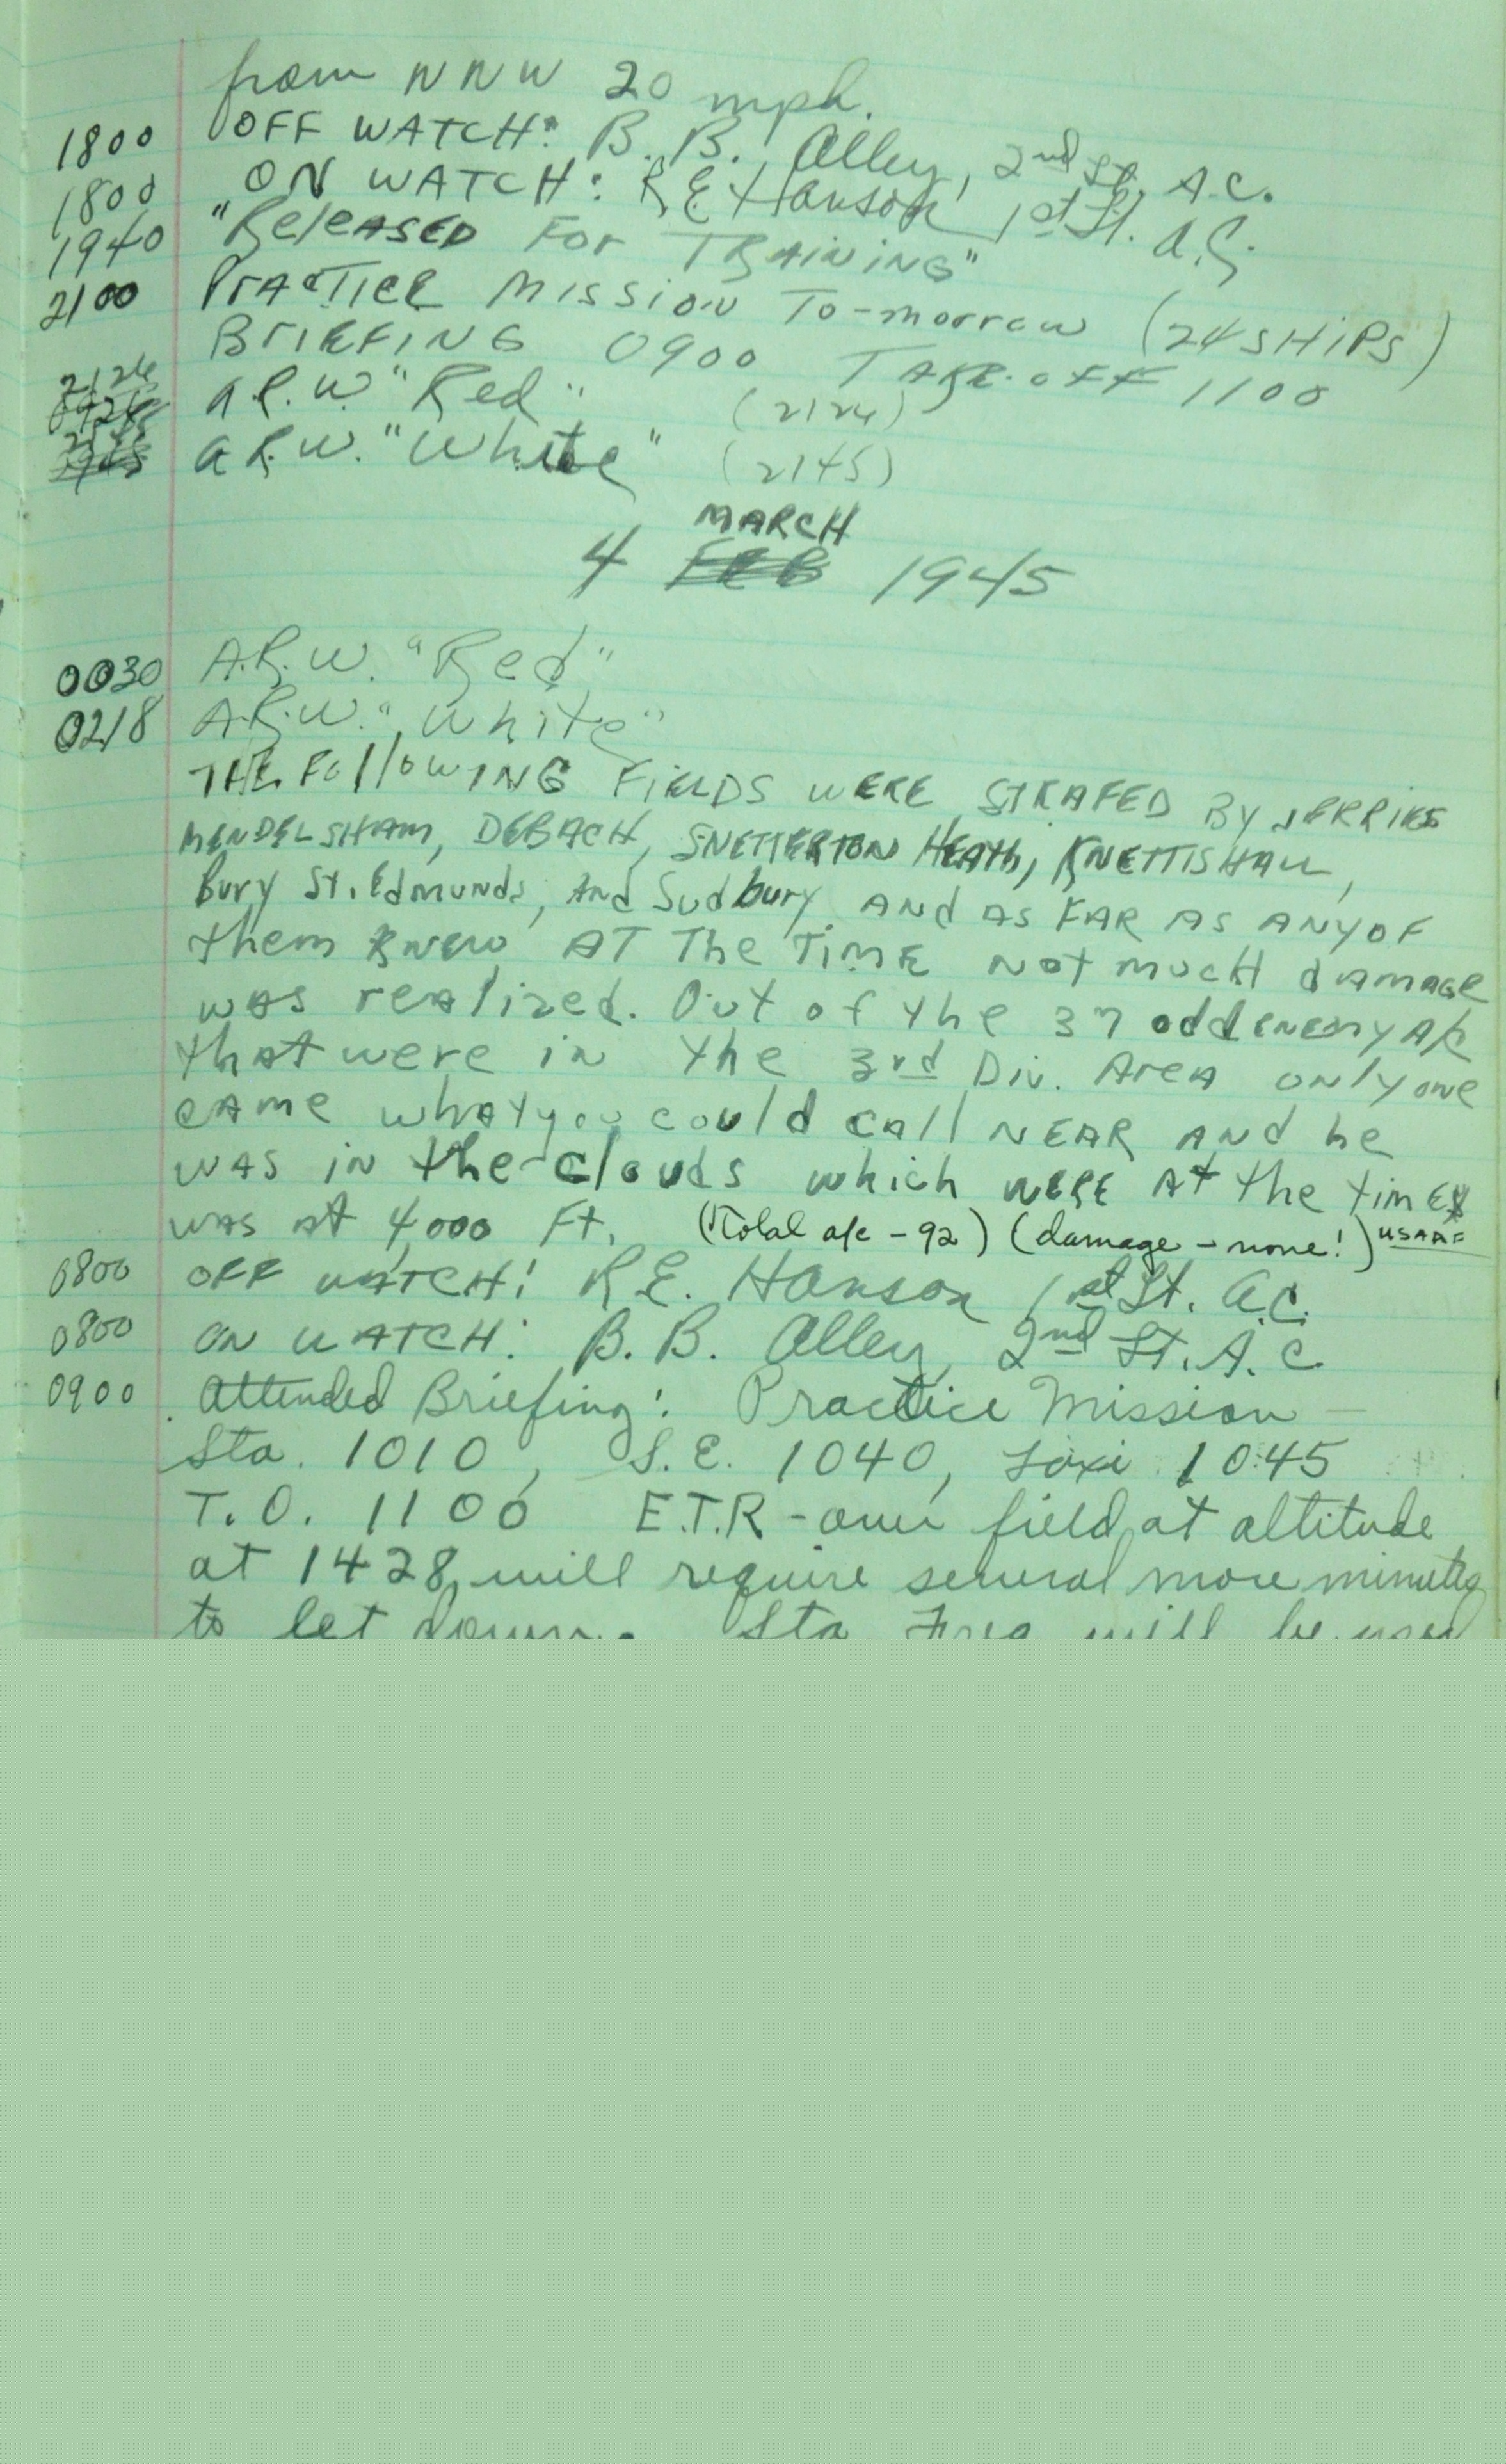 from NNW 20 mph.
1800 OFF WATCH: B. B. Alley, 2nd Lt. A.C.
1800 ON WATCH: R E Hanson 1st Lt. A.C.
1940 "Released For TRAINING"
2100 PrACTICE Mission To-morrow (24 SHIPS)
BrIEFING 0900 TAKE-OFF 1100
2126 A.R.W. "Red" (2126)
A.R.W. "White" (2145)
MARCH
4 FEB 1945
0030 A.R.W. "Red"
0218 A.R.W. "White"
THE FollowING FIELDS WERE STRAFED By JERRIES
MENDELSHAM, DEBACH, SNETTERTON HEATH, KNETTISHALL,
Bury St. Edmunds, And Sudbury AND AS FAR AS ANY OF
them knew AT The TIME Not much damage
was realized. Out of the 37 odd ENEMY A/C
that were in the 3rd Div. Area only one
CAME what you could call NEAR AND he
WAS IN the clouds which WERE At the time
was at 4,000 Ft. (Total a/c - 92) (damage - none!) USAAF
0800 OFF WATCH: R.E. Hanson 1st Lt. A.C.
0800 ON WATCH: B. B. Alley, 2nd Lt. A.C.
0900 Attended Briefing: Practice Mission -
Sta. 1010, S.E. 1040, Taxi 1045
T.O. 1100 E.T.R - over field at altitude
at 1428, will require several more minutes
to let down. Sta Freq will be used